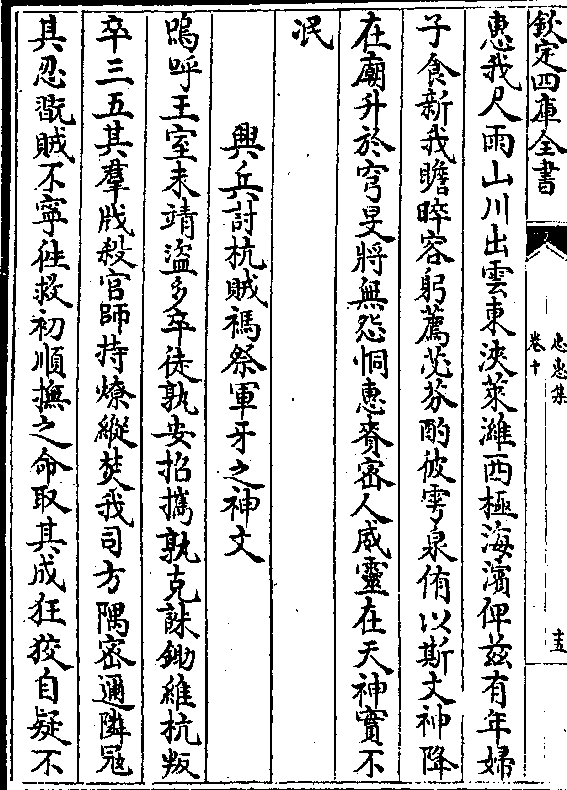 欽定四庫全書
忠惠集
卷十
十五
惠我尺雨山川出雲東浹萊濰西極海濱俾兹有年婦
子食新我瞻晬容躬薦苾芬酌彼雩泉侑以斯文神降
在廟升於穹旻將無怨恫惠賚密人威靈在天神實不
泯
興兵討杭賊禡祭軍牙之神文
嗚呼王室未靖盜多卒徒孰安招攜孰克誅鋤維杭叛
卒三五其羣戕殺官師持燎縱焚我司方隅密邇隣冦
其忍翫賊不寧徃救初順撫之命取其成狂狡自疑不